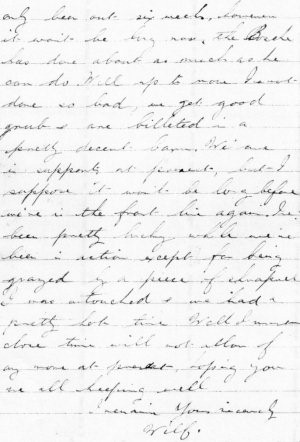 only been out six weeks, however
it wont be long now, the Boche
has done about as much as he
can do. Well up to now I've not
done so bad, we get good
grub & are billeted in a
pretty decent barn. We are
in supports at present, but I
suppose it won't be long before
we're in the front line again. I've
been pretty lucky while we've
been in action except for being
grazed by a piece of shrapnel
I was untouched & we had a
pretty hot time Well I must
close time will not allow of
any more at present, hoping you
are all keeping well
I remain Yours sincerely
Wilf.